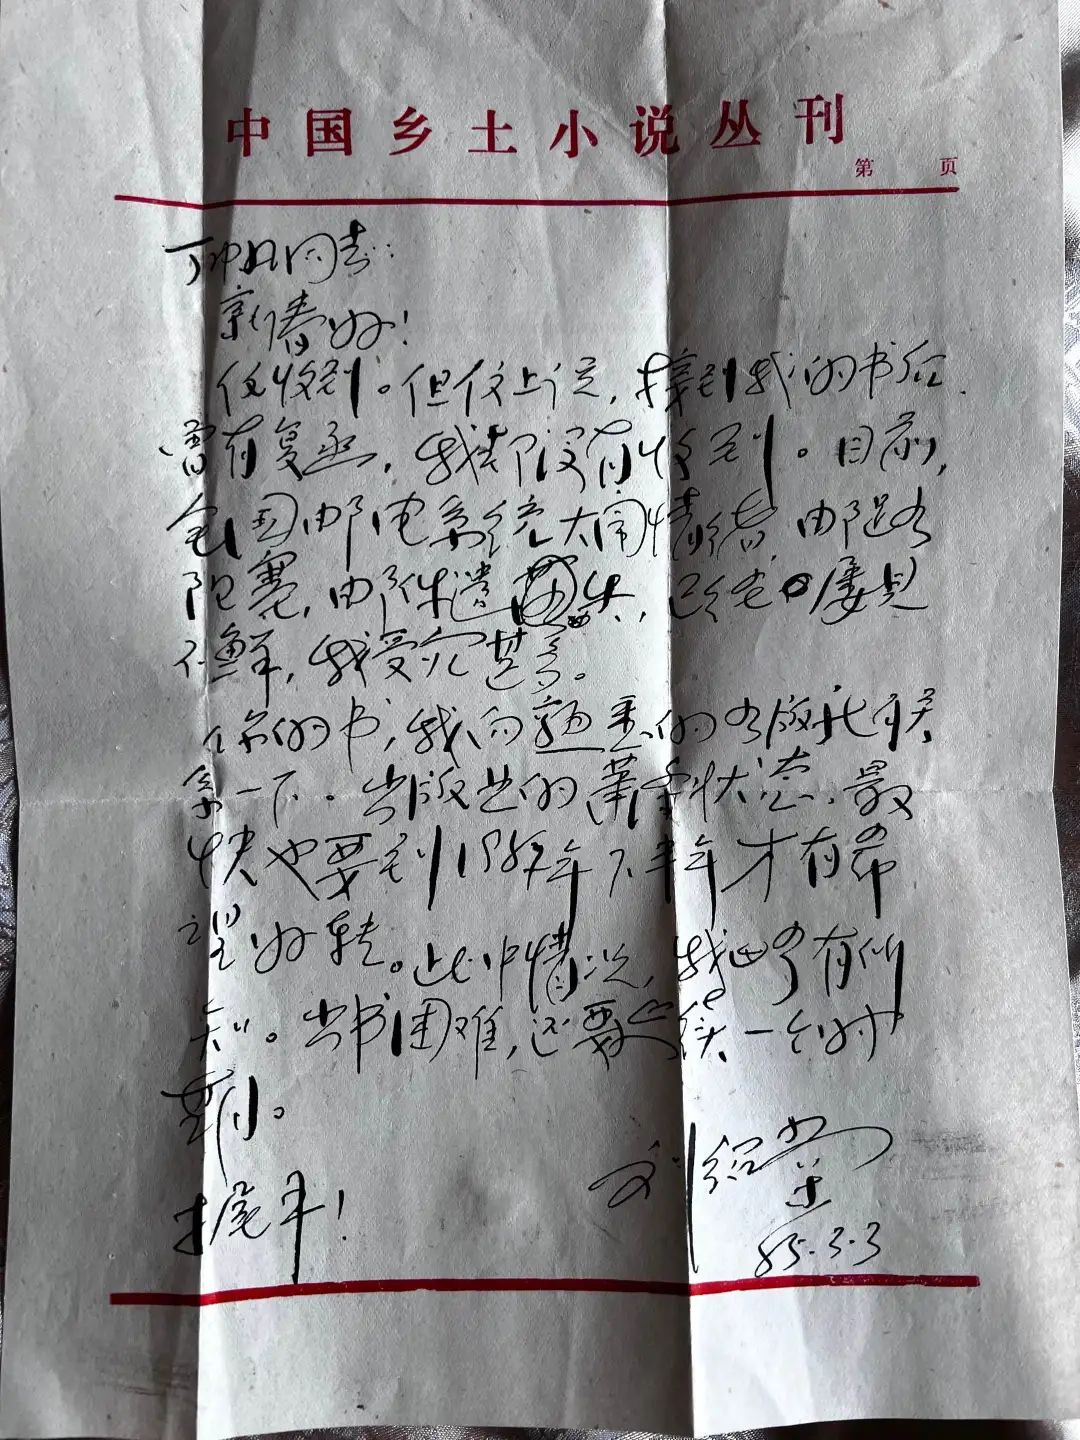 中国乡土小说丛刊
第 页
丁 同志：
新春好！
信收到。但信上说，接到我的书后
曾有复函，我却没有收到。目前，
全国邮电系统大闹情绪，邮路
阻塞，邮件遗失，已经屡见
不鲜，我受灾甚多。
你的书，我向熟悉的出版社联
系一下。出版业的萧条状态，最
快也要到1987年下半年才有希
望好转。此中情况，我略有所
知。出书困难，还要继续一个时
期。
握手！
刘绍棠
85.3.3